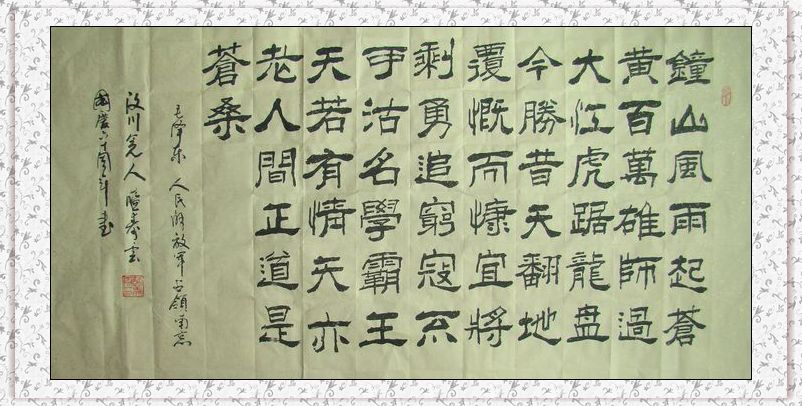 鐘山風雨起蒼
黄百萬雄師過
大江虎踞龍盘
今勝昔天翻地
覆慨而慷宜將
剩勇追窮寇不
可沽名學霸王
天若有情天亦
老人間正道是
蒼桑
毛泽东 人民解放军占領南京
汶川羌人
國慶六十周年書